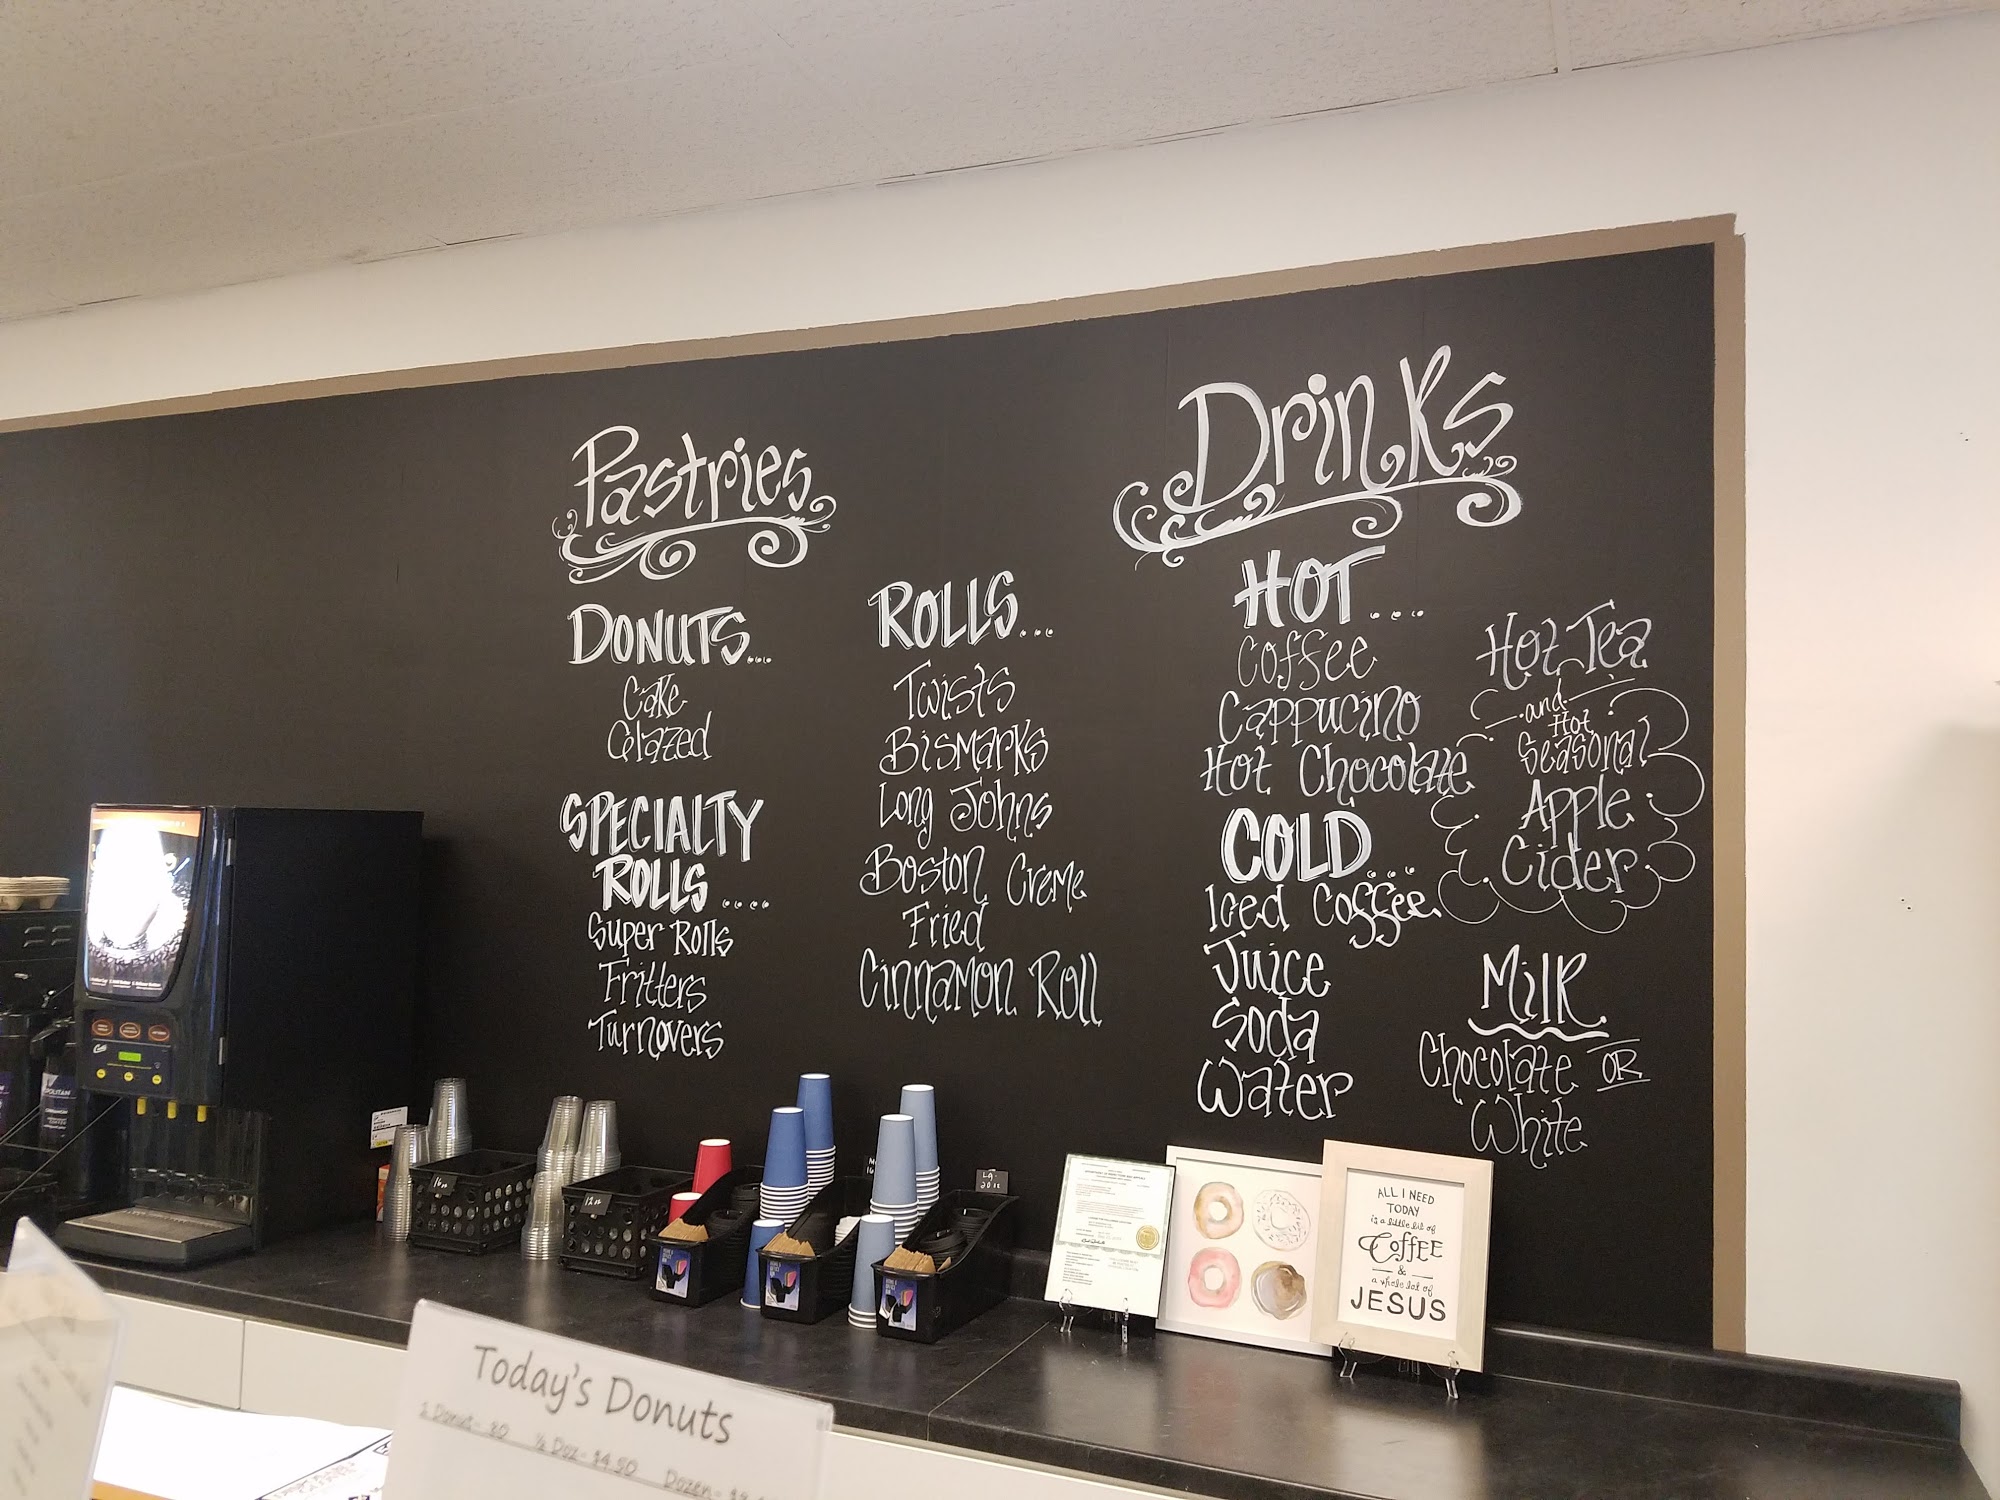 Pastries
DONUTS...
Cake
Glazed
SPECIALTY
ROLLS....
Super Rolls
Fritters
Turnovers
ROLLS...
Twists
Bismarks
Long Johns
Boston Creme
Fried
Cinnamon Roll
Drinks
HOT....
Coffee
Cappucino
Hot Chocolate
COLD....
Iced Coffee
Juice
Soda
Water
Hot Tea
and
Hot
Seasonal
Apple
Cider
Milk
Chocolate OR
White
16oz
12oz
LG-
20oz
ALL I NEED
TODAY
is a little bit of
COFFEE
&
a whole lot of
JESUS
Today's Donuts
½ Doz - $4.50
Dozen -